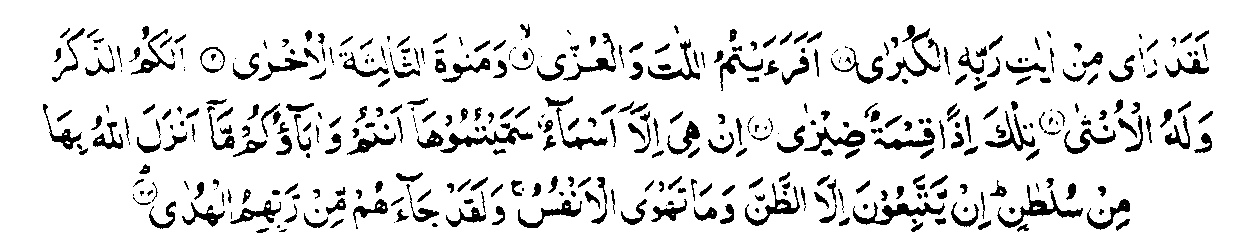 لَقَدْ رَاٰى مِنْ اٰيٰتِ رَبِّهِ الْكُبْرٰى ﴿۱۸﴾ اَفَرَءَيْتُمُ اللّٰتَ وَالْعُزّٰى ﴿۱۹﴾ وَمَنٰوةَ الثَّالِثَةَ الْاُخْرٰى ﴿۲۰﴾ اَلَكُمُ الذَّكَرُ
وَلَهُ الْاُنْثٰى ﴿۲۱﴾ تِلْكَ اِذًا قِسْمَةٌ ضِيْزٰى ﴿۲۲﴾ اِنْ هِىَ اِلَّاۤ اَسْمَآءٌ سَمَّيْتُمُوْهَاۤ اَنْتُمْ وَاٰبَآؤُكُمْ مَّاۤ اَنْزَلَ اللّٰهُ بِهَا
مِنْ سُلْطٰنٍ ؕ اِنْ يَّتَّبِعُوْنَ اِلَّا الظَّنَّ وَمَا تَهْوَى الْاَنْفُسُ ۚ وَلَقَدْ جَآءَهُمْ مِّنْ رَّبِّهِمُ الْهُدٰى ؕ ﴿۲۳﴾